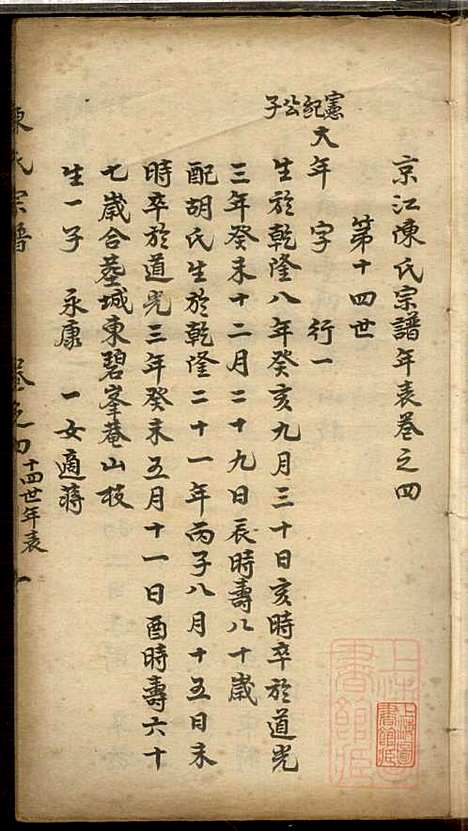 京江陳氏宗譜年表卷之四
第十四世
憲紀公子
大年 字 行一
生於乾隆八年癸亥九月三十日亥時卒於道光
三年癸未十二月二十九日辰時壽八十歲
配胡氏生於乾隆二十一年丙子八月十五日未
時卒於道光三年癸未五月十一日酉時壽六十
七歲合墓城東碧峯菴山枝
生一子 永康 一女適蔣
陳氏宗譜 卷之四 十四世年表 一